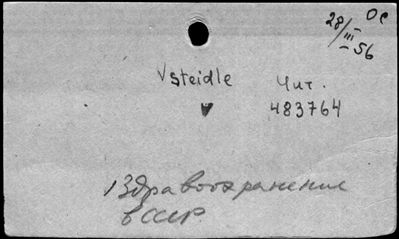 28/III-56 Ос
Vsteidle Чит.
483764
Здравоохранение
в СССР